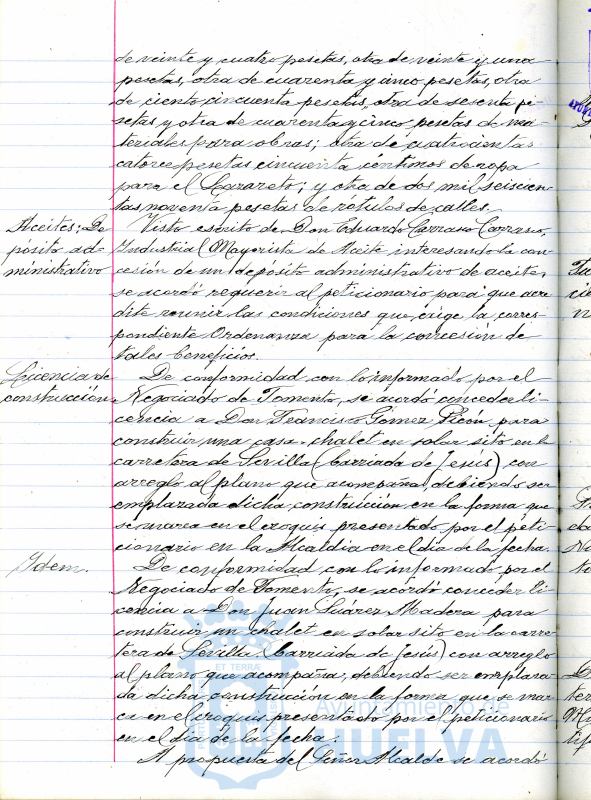 de veinte y cuatro pesetas, otra de veinte y una
pesetas, otra de cuarenta y cinco pesetas, otra
de ciento cincuenta pesetas, otra de sesenta pe-
setas, y otra de cuarenta y cinco pesetas de ma-
teriales para obras; otra de cuatrocientas
catorce pesetas cincuenta céntimos de ropa
para el Lazareto; y otra de dos mil seiscien-
tas noventa pesetas de rótulos de calles.
Aceites: De-
pósito ad-
ministrativo
Visto escrito de Don Eduardo Carrasco Carrasco,
Industrial Mayorista de Aceite interesando la con-
cesión de un depósito administrativo de aceites,
se acordó requerir al peticionario para que acre-
dite reunir las condiciones que exige la corres-
pondiente Ordenanza para la concesión de
tales beneficios.
Licencia de
construcción
De conformidad con lo informado por el
Negociado de Fomento, se acordó conceder li-
cencia a Don Francisco Gómez Picón para
construir una casa-chalet en solar sito en la
carretera de Sevilla (barriada de Jesús) con
arreglo al plano que acompaña, debiendo ser
emplazada dicha construcción en la forma que
se marca en el croquis presentado por el peti-
cionario en la Alcaldia en el día de la fecha.
Idem.
De conformidad con lo informado por el
Negociado de Fomento, se acordó conceder li-
cencia a Don Juan Suárez Madera para
construir un chalet en solar sito en la carre-
tera de Sevilla (barriada de Jesús) con arreglo
al plano que acompaña, debiendo ser emplaza-
da dicha construcción en la forma que se mar-
ca en el croquis presentado por el peticionario
en el día de la fecha.
A propuesta del Señor Alcalde se acordó
Ayuntamiento de
HUELVA